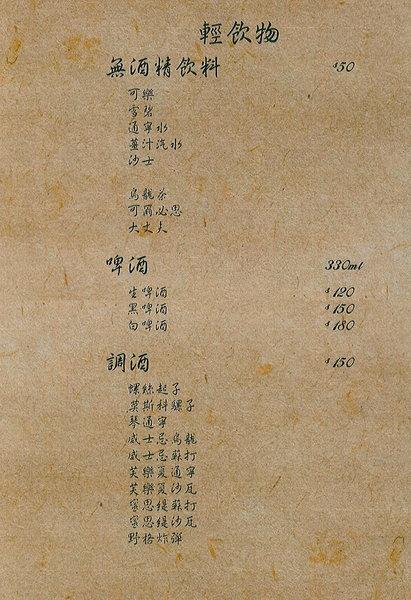 輕飲物
無酒精飲料 $50
可樂
雪碧
通寧水
薑汁汽水
沙士
烏龍茶
可爾必思
大丈夫
啤酒 330ml
生啤酒 $120
黑啤酒 $150
白啤酒 $180
調酒 $150
螺絲起子
莫斯科騾子
琴通寧
威士忌烏龍
威士忌蘇打
芙樂夏通寧
芙樂夏沙瓦
蜜思緹蘇打
蜜思緹沙瓦
野格炸彈